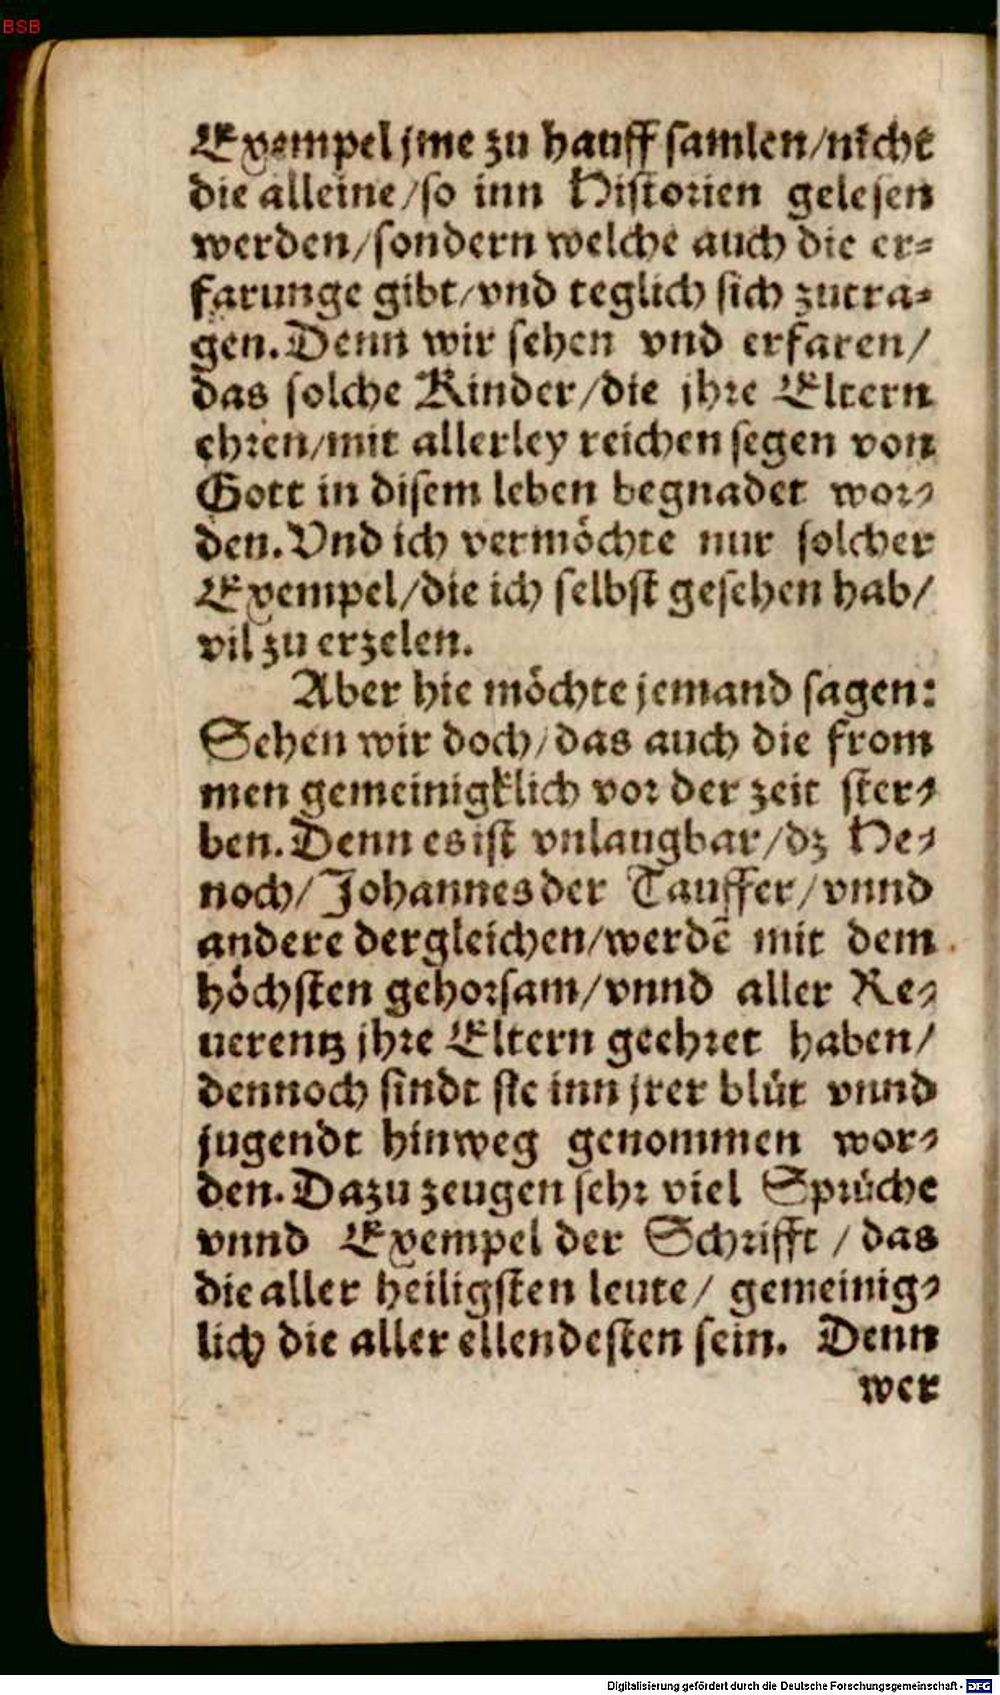 BSB
Exempel jme zu hauff samlen/nicht
die alleine/so inn Historien gelesen
werden/sondern welche auch die er=
farunge gibt/vnd teglich sich zutra=
gen. Denn wir sehen vnd erfaren/
das solche Kinder/die jhre Eltern
ehren/mit allerley reichen segen von
Gott in disem leben begnadet wor=
den. Vnd ich vermöchte nur solcher
Exempel/die ich selbst gesehen hab/
vil zu erzelen.
Aber hie möchte jemand sagen:
Sehen wir doch/das auch die from
men gemeinigklich vor der zeit ster=
ben. Denn es ist vnlaugbar/dz He=
noch/Johannes der Tauffer/vnnd
andere dergleichen/werdē mit dem
höchsten gehorsam/vnnd aller Re=
uerentz jhre Eltern geehret haben/
dennoch sindt sie inn jrer blüt vnnd
jugendt hinweg genommen wor=
den. Dazu zeugen sehr viel Sprüche
vnnd Exempel der Schrifft/das
die aller heiligsten leute/ gemeinig=
lich die aller ellendesten sein. Denn
wer
Digitalisierung gefördert durch die Deutsche Forschungsgemeinschaft - DFG